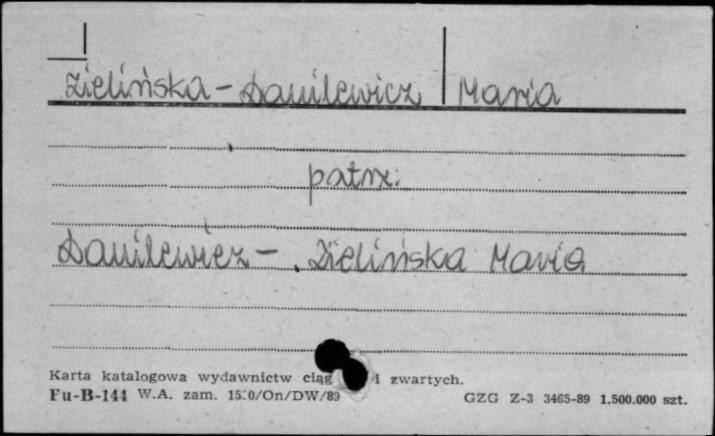 Zielińska - Danilewicz Maria
patrz:
Danilewicz - Zielińska Maria
Karta katalogowa wydawnictw ciąg i zwartych.
Fu-B-144 W.A. zam. /On/DW/89 GZG Z-3 3465-89 1.500.000 szt.